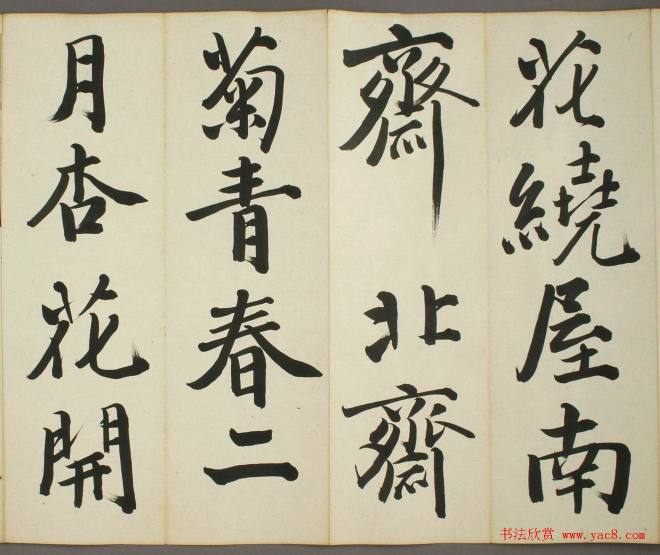 花繞屋南
齋 北齋
菊青春二
月杏花開
书法欣赏
www.yac8.com